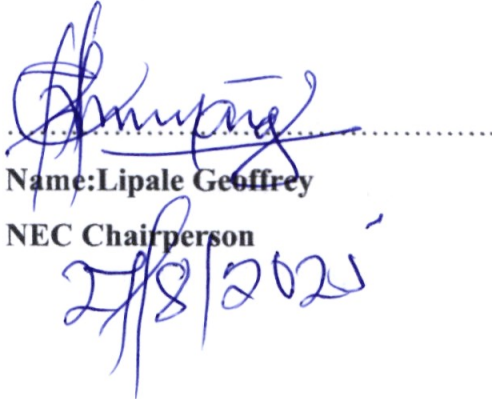 Name:Lipale Geoffrey
NEC Chairperson
27/8/2025